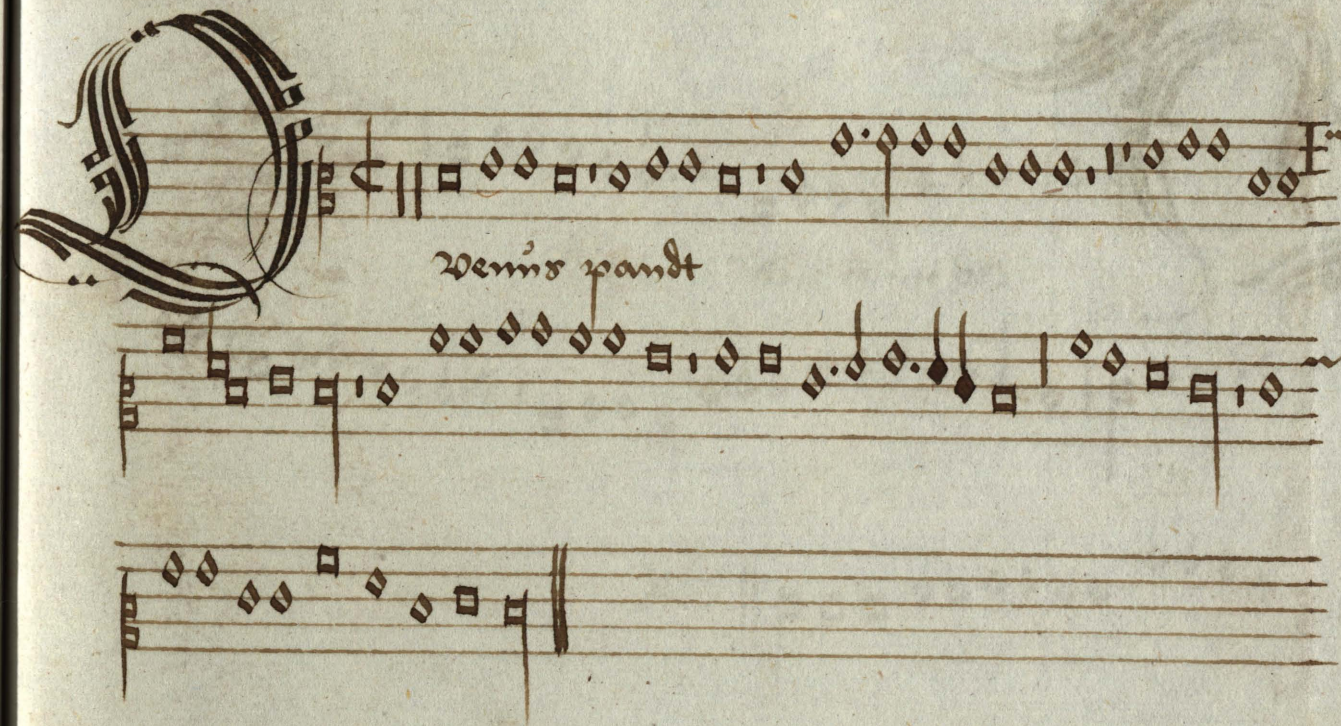 venus pandt